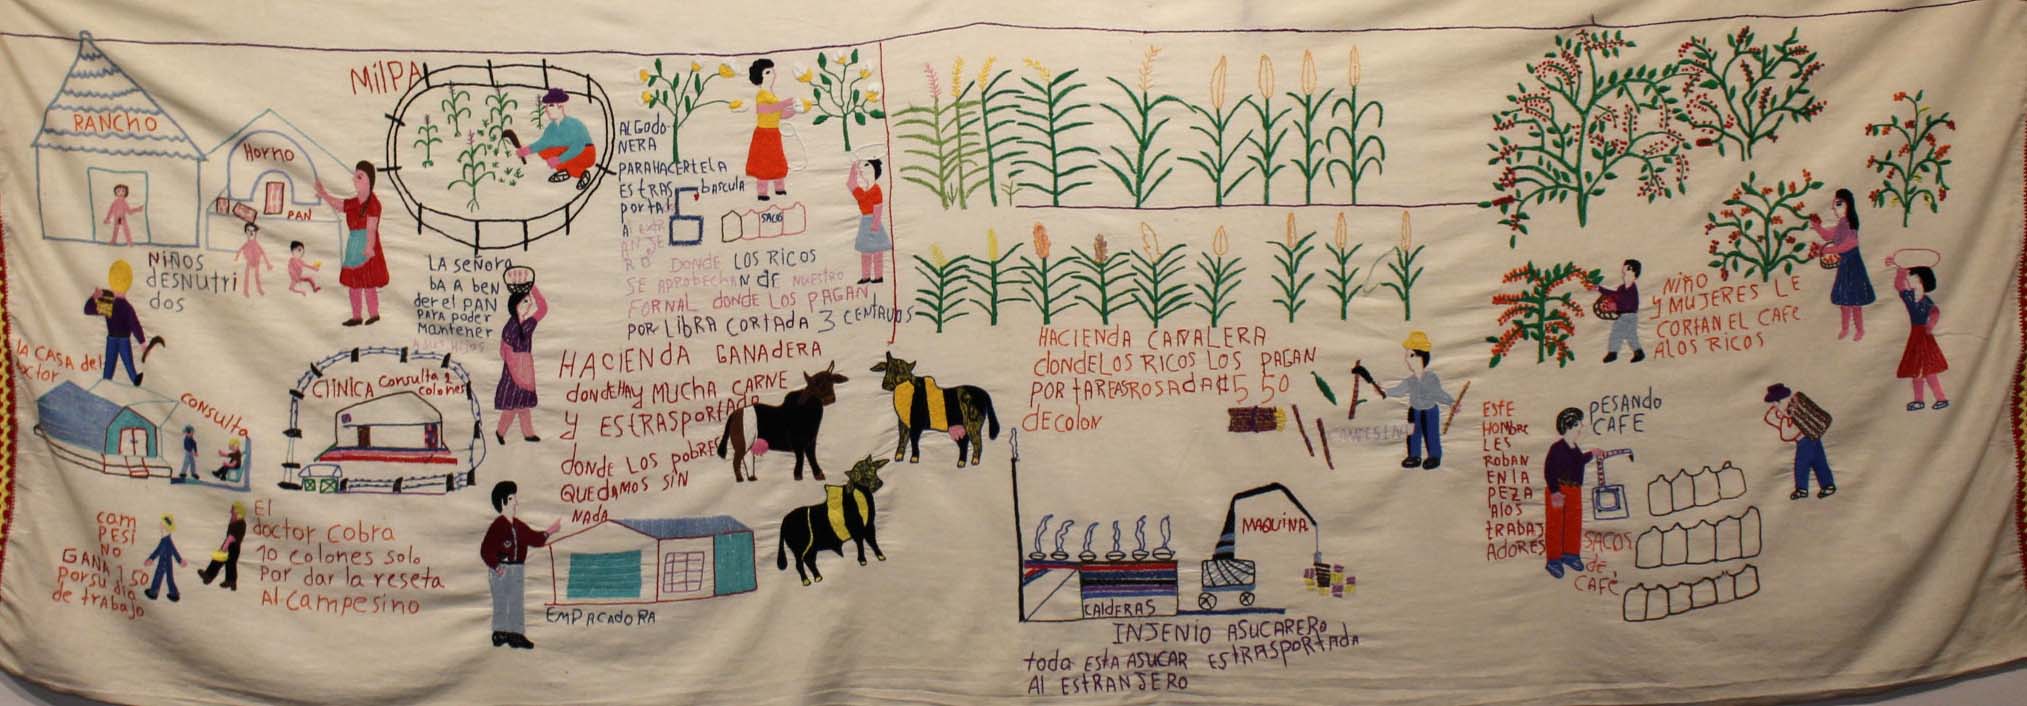 RANCHO
HORNO
PAN
NiÑOS
dESNUtRi
dOS
MilPA
LA SEÑORA
bA A bEN
dER El PAN
PARA POdER
MANtENER
A SUS HIJOS
AlGOdO-
NERA
PARAHACERtElA
EStRAS
PORtAl
Al EXtR
ANJE
RO
bASCULA
SACO
dONdE LOS RICOS
SE APROBECHAN dE NUESTRO
FORNAL dONdE LOS PAGAN
POR LIBRA CORTADA 3 CENTAVOS
LA CASA dEl
CONSULtA
CliNICA CONSULTA 2
COLONES
CAM
PESI
NO
GANA 1 50
PORSU dIA
dE tRAbAJO
El
dOCtOR COBRA
10 COLONES SOLO
POR dAR lA RESEtA
Al CAMPESINO
HACIENdA GANAdERA
dONdEHAY MUCHA CARNE
Y EStRASPORtAdA
dONdE LOS PObRES
QUEdAMOS SIN
NAdA
EMPACAdORA
HACIENdA CAÑALERA
dONdELOS RICOS LOS PAGAN
POR tAREASROSAdA ₡5 50
dECOLON
CAMPESINO
MAQUINA
CAldERAS
INJENIO ASUCARERO
tOdA EStA ASUCAR EStRASPORtAdA
Al EStRANJERO
NIÑO
Y MUJERES LE
CORtAN EL CAFE
ALOS RICOS
ESTE
HOMBRE
LES
ROBAN
EN lA
PEZA
AlOS
tRABAJ
AdORES
PESANdO
CAFE
SACOS
dE
CAFÉ